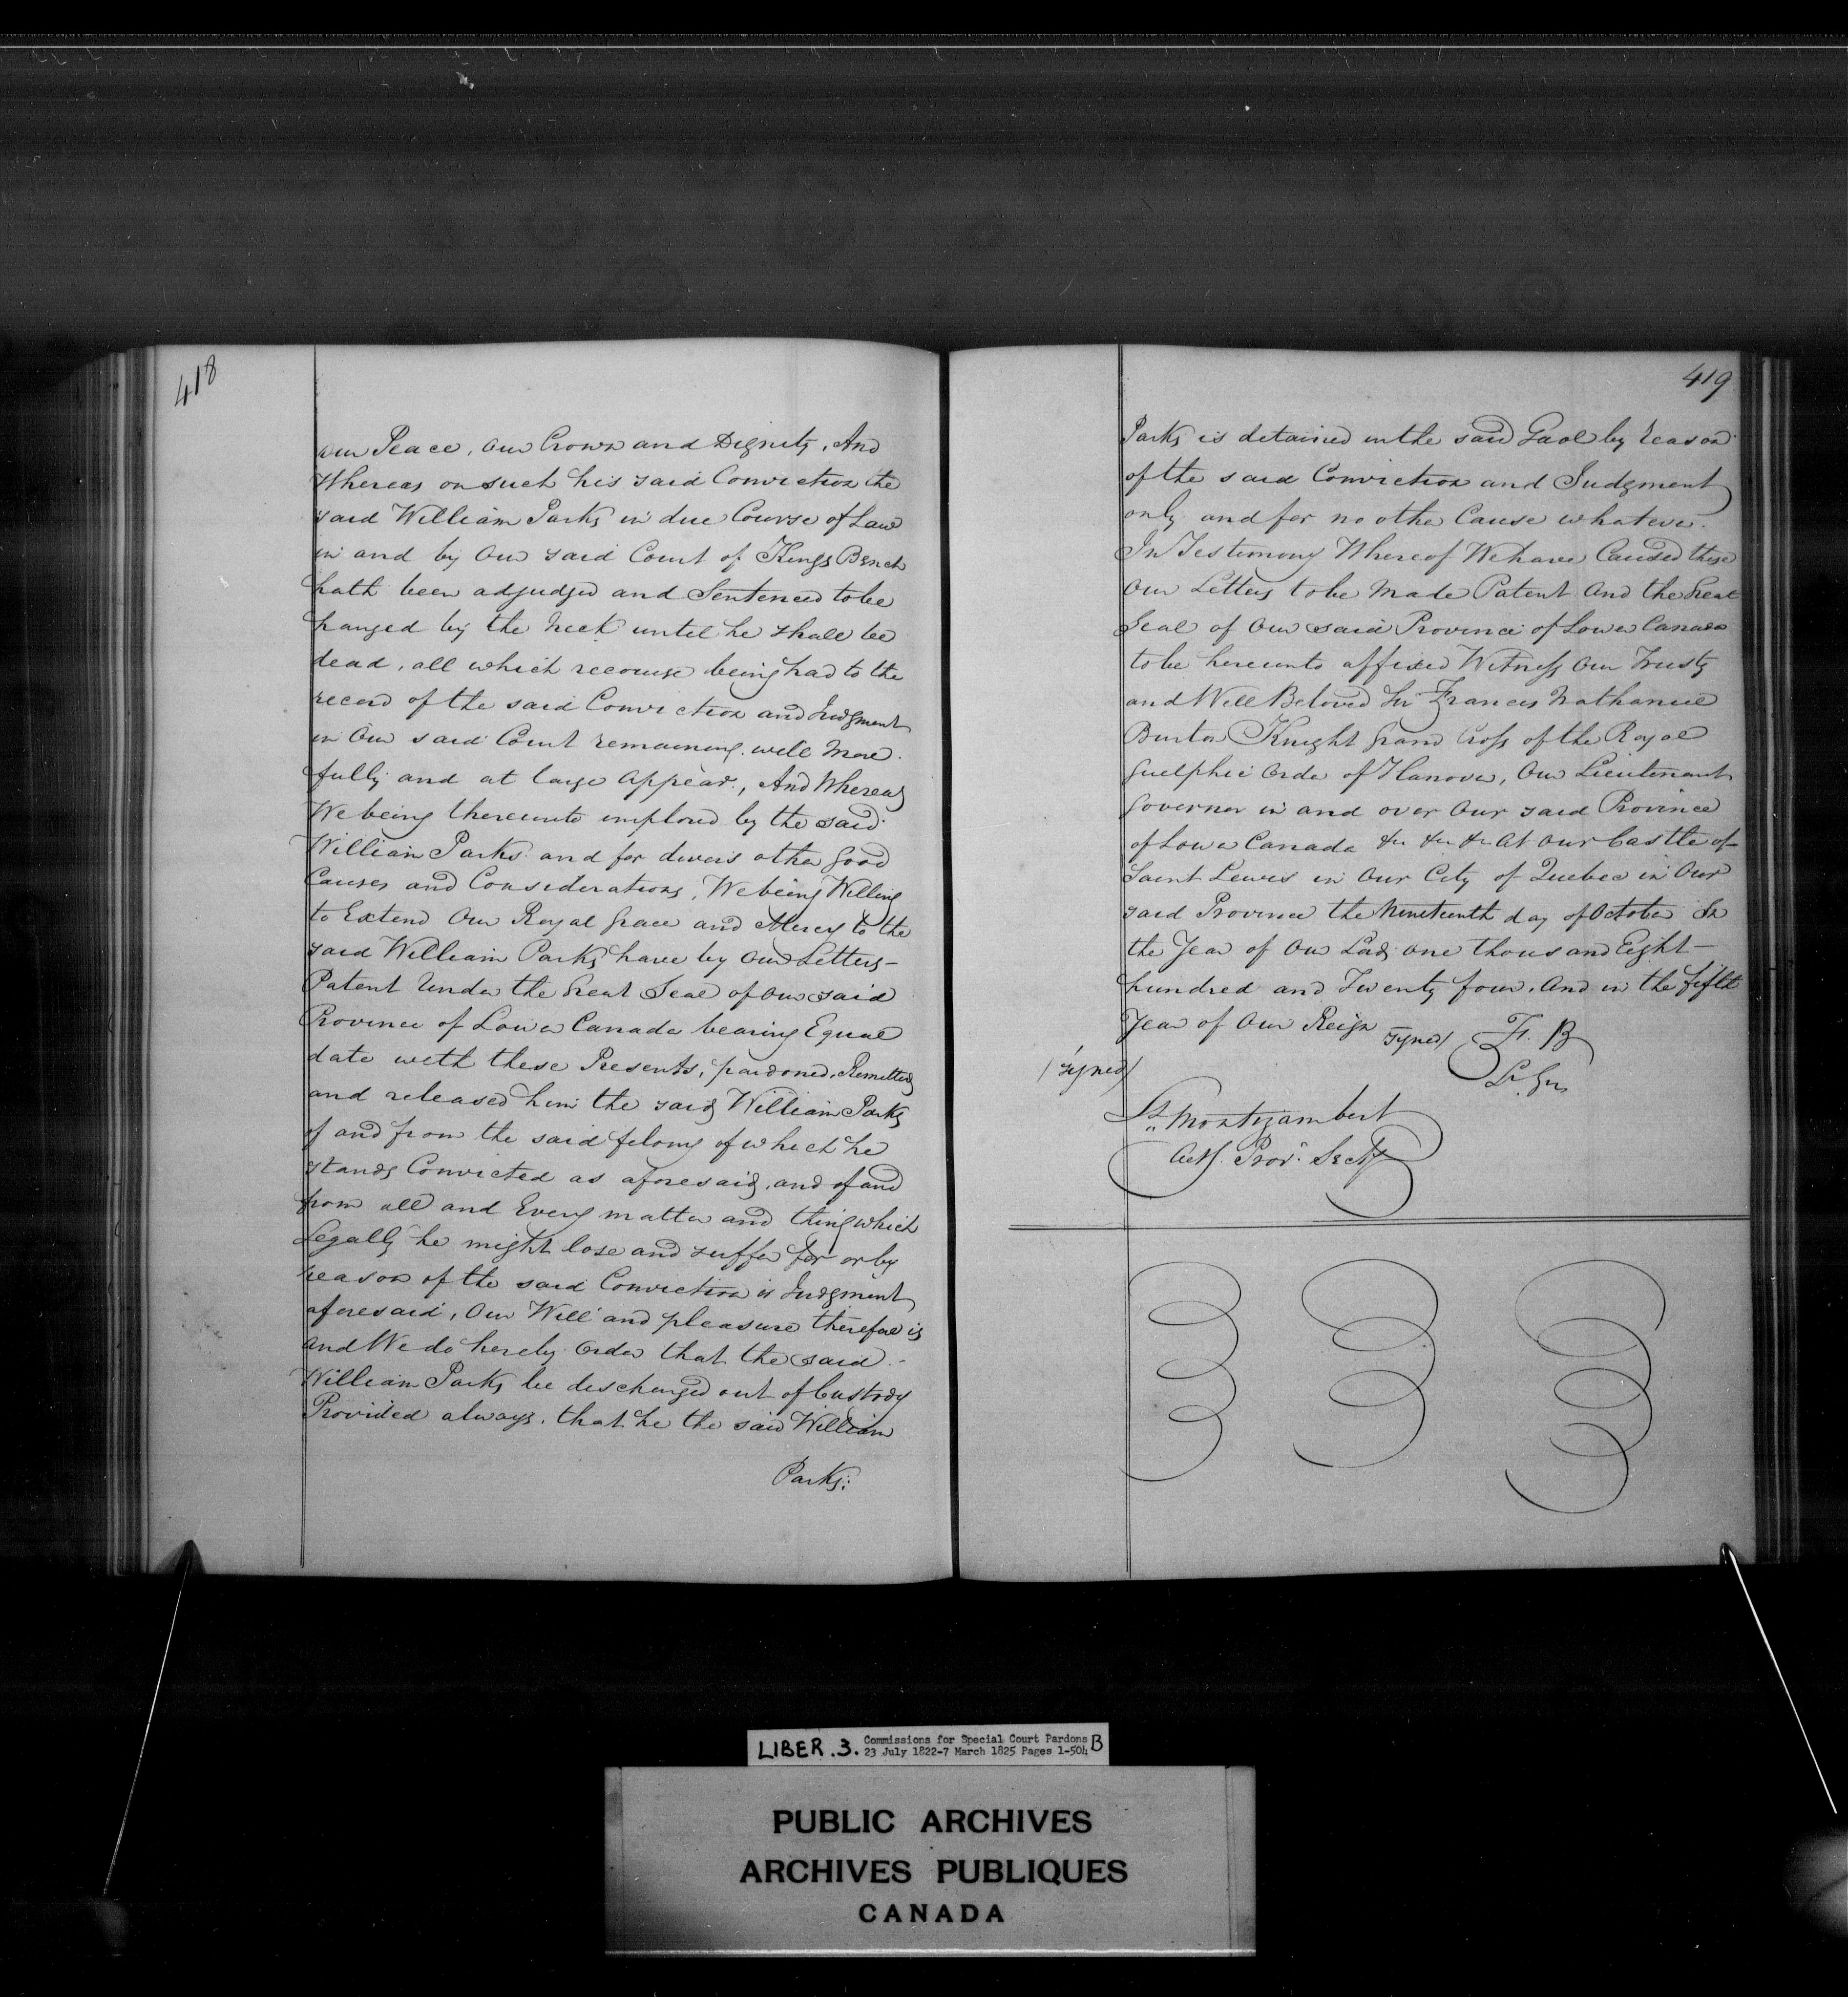 418
our Peace, our Crown and Dignity, And
Whereas on such his said Conviction the
said William Parks in due Course of Law
in and by Our said Court of Kings Bench
hath been adjudged and Sentenced to be
hanged by the Neck until he shall be
dead, all which recourse being had to the
record of the said Conviction and Judgment
in Our said Court remaining will more
fully and at large appear, And Whereas
We being thereunto implored by the said
William Parks and for divers other good
Causes and Considerations, We being Willing
to Extend Our Royal Grace and Mercy to the
said William Parks have by Our Letters-
Patent Under the Great Seal of Our said
Province of Lower Canada bearing Equal
date with these Presents, pardoned, Remitted
and released him the said William Parks
of and from the said felony of which he
stands Convicted as aforesaid, and of and
from all and Every matter and thing which
Legally he might lose and suffer for or by
reason of the said Conviction is Judgment
aforesaid, Our Will and pleasure therefore is
and We do hereby Order that the said
William Parks be discharged out of Custody
Provided always, that he the said William
Parks
419
Parks is detained in the said Gaol by reason
of the said Conviction and Judgment
only and for no other Cause whatever.
In Testimony Whereof We have Caused these
Our Letters to be Made Patent And the Great
Seal of Our said Province of Lower Canada
to be hereunto affixed Witness Our Trusty
and Well Beloved Sir Francis Nathaniel
Burton Knight Grand Cross of the Royal
Guelphic Order of Hanover, Our Lieutenant
Governor in and over Our said Province
of Lower Canada &c &c &c At Our Castle of-
Saint Lewis in Our City of Quebec in Our
said Province the Nineteenth day of October In
the Year of Our Lord one thousand Eight-
hundred and Twenty four, And in the fifth
Year of Our Reign signed/ F. B
Lt Gov
/signed/
Ls Montizambert
Actg. Prov. Secy
LIBER.3. Commissions for Special Court Pardons B
23 July 1822-7 March 1825 Pages 1-504
PUBLIC ARCHIVES
ARCHIVES PUBLIQUES
CANADA